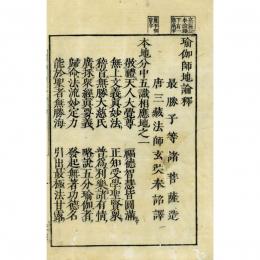 瑜伽師地論釋
最勝子等諸菩薩造
唐三藏法師玄奘奉 詔譯
本地分中五識相應地之一
敬禮天人大覺尊 福德智慧皆圓滿
無上文義眞妙法 正知受學聖賢眾
稽首無勝大慈氏 普爲利樂諸有情
廣採眾經眞要義 略說五分瑜伽者
歸命法流妙定力 發起無著功德名
能於聖者無勝海 引出最極法甘露